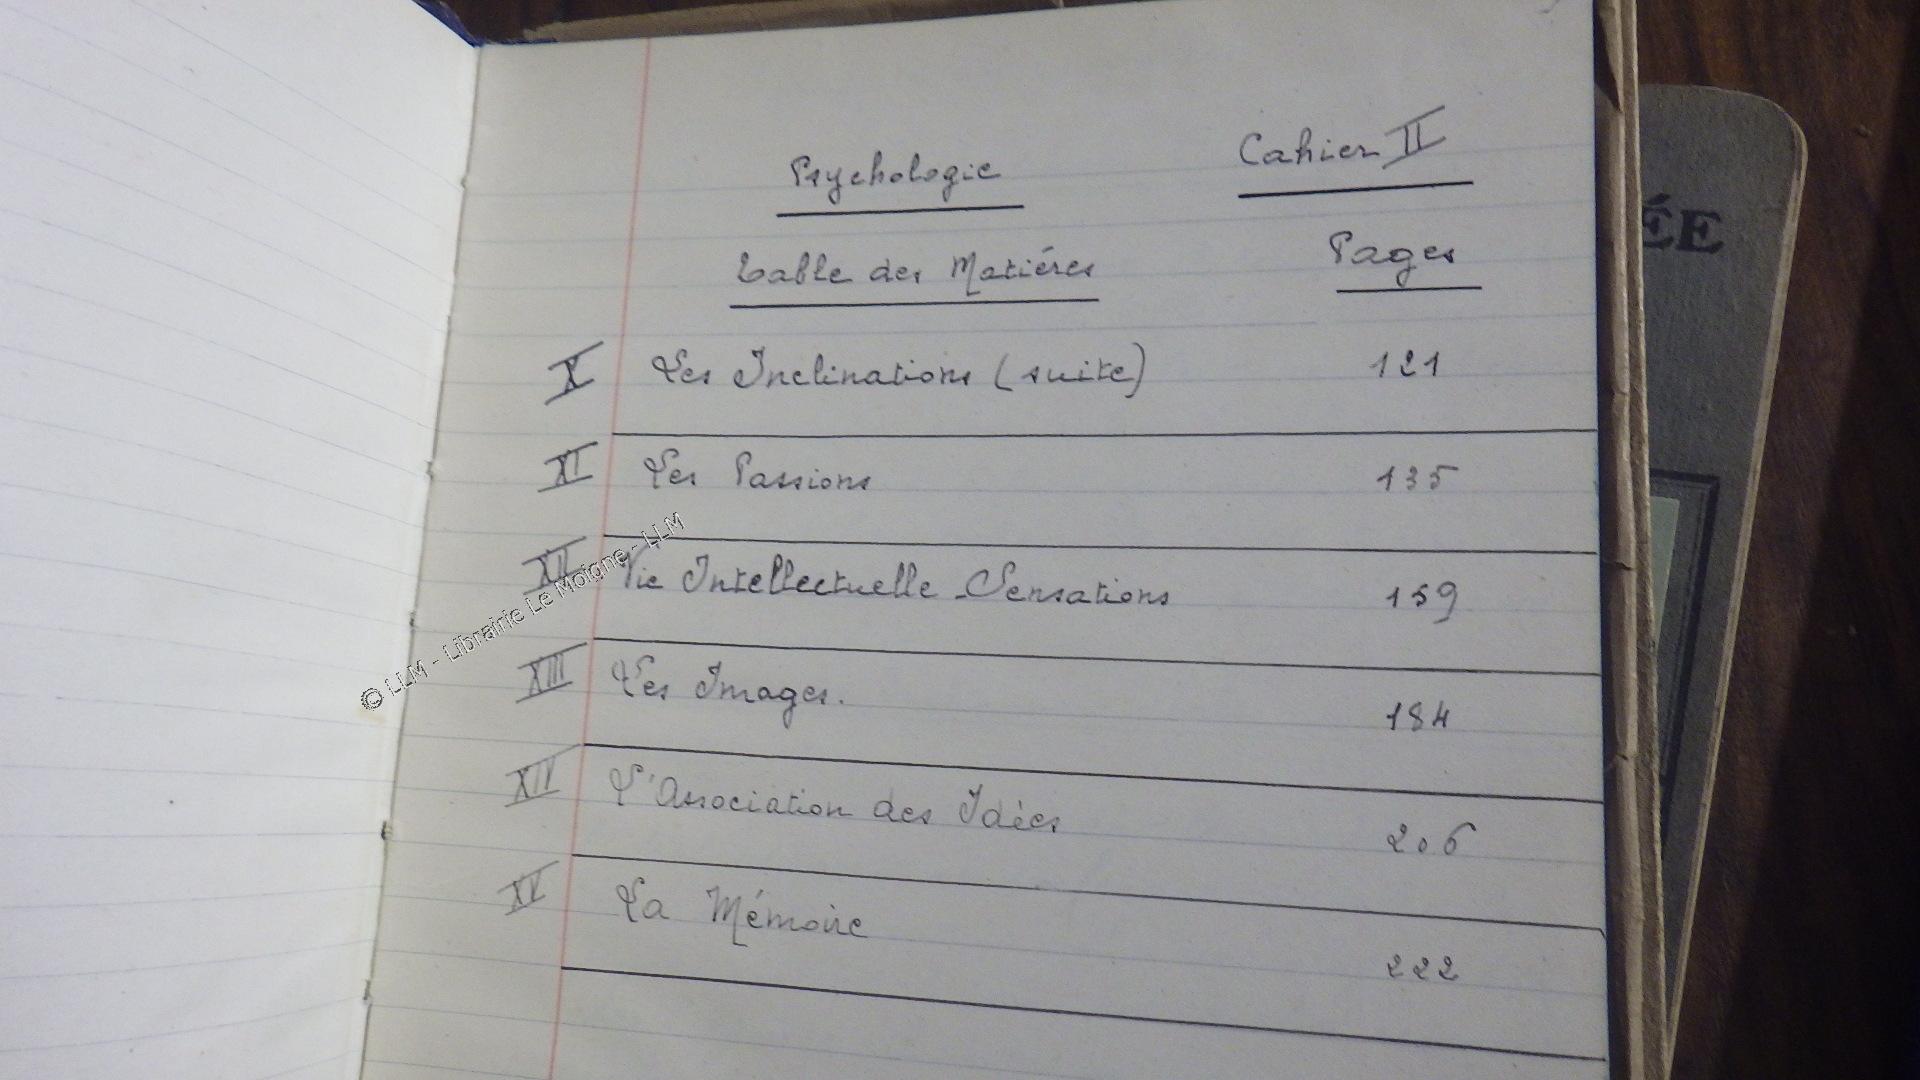 Psychologie Cahier II
Table des Matières Pages
X Les Inclinations (suite) 121
XI Les Passions 135
XII Vie Intellectuelle _ Sensations 159
XIII Les Images. 184
XIV L'Association des Idées 206
XV La Mémoire 222
© LLM - Librairie Le Moigne - LLM
ÉE